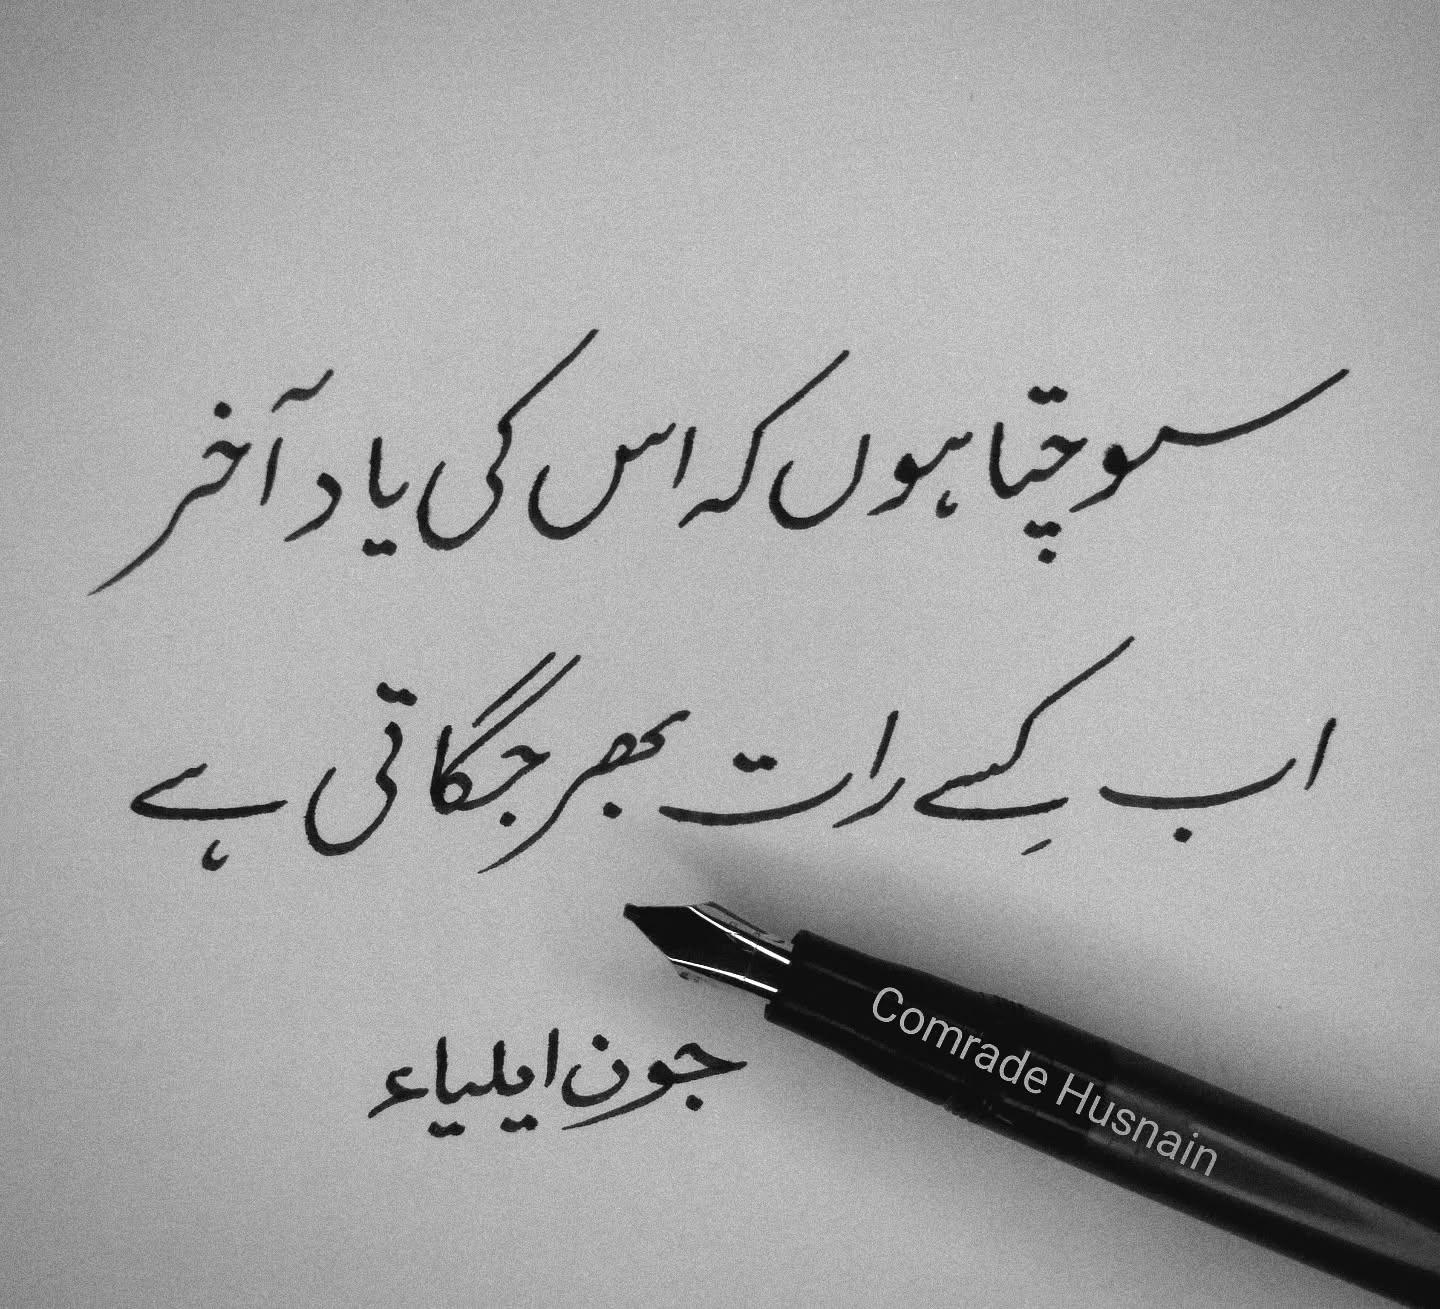 سوچتا ہوں کہ اس کی یاد آخر
اب کِسے رات بھر جگاتی ہے
جون ایلیاء
Comrade Husnain